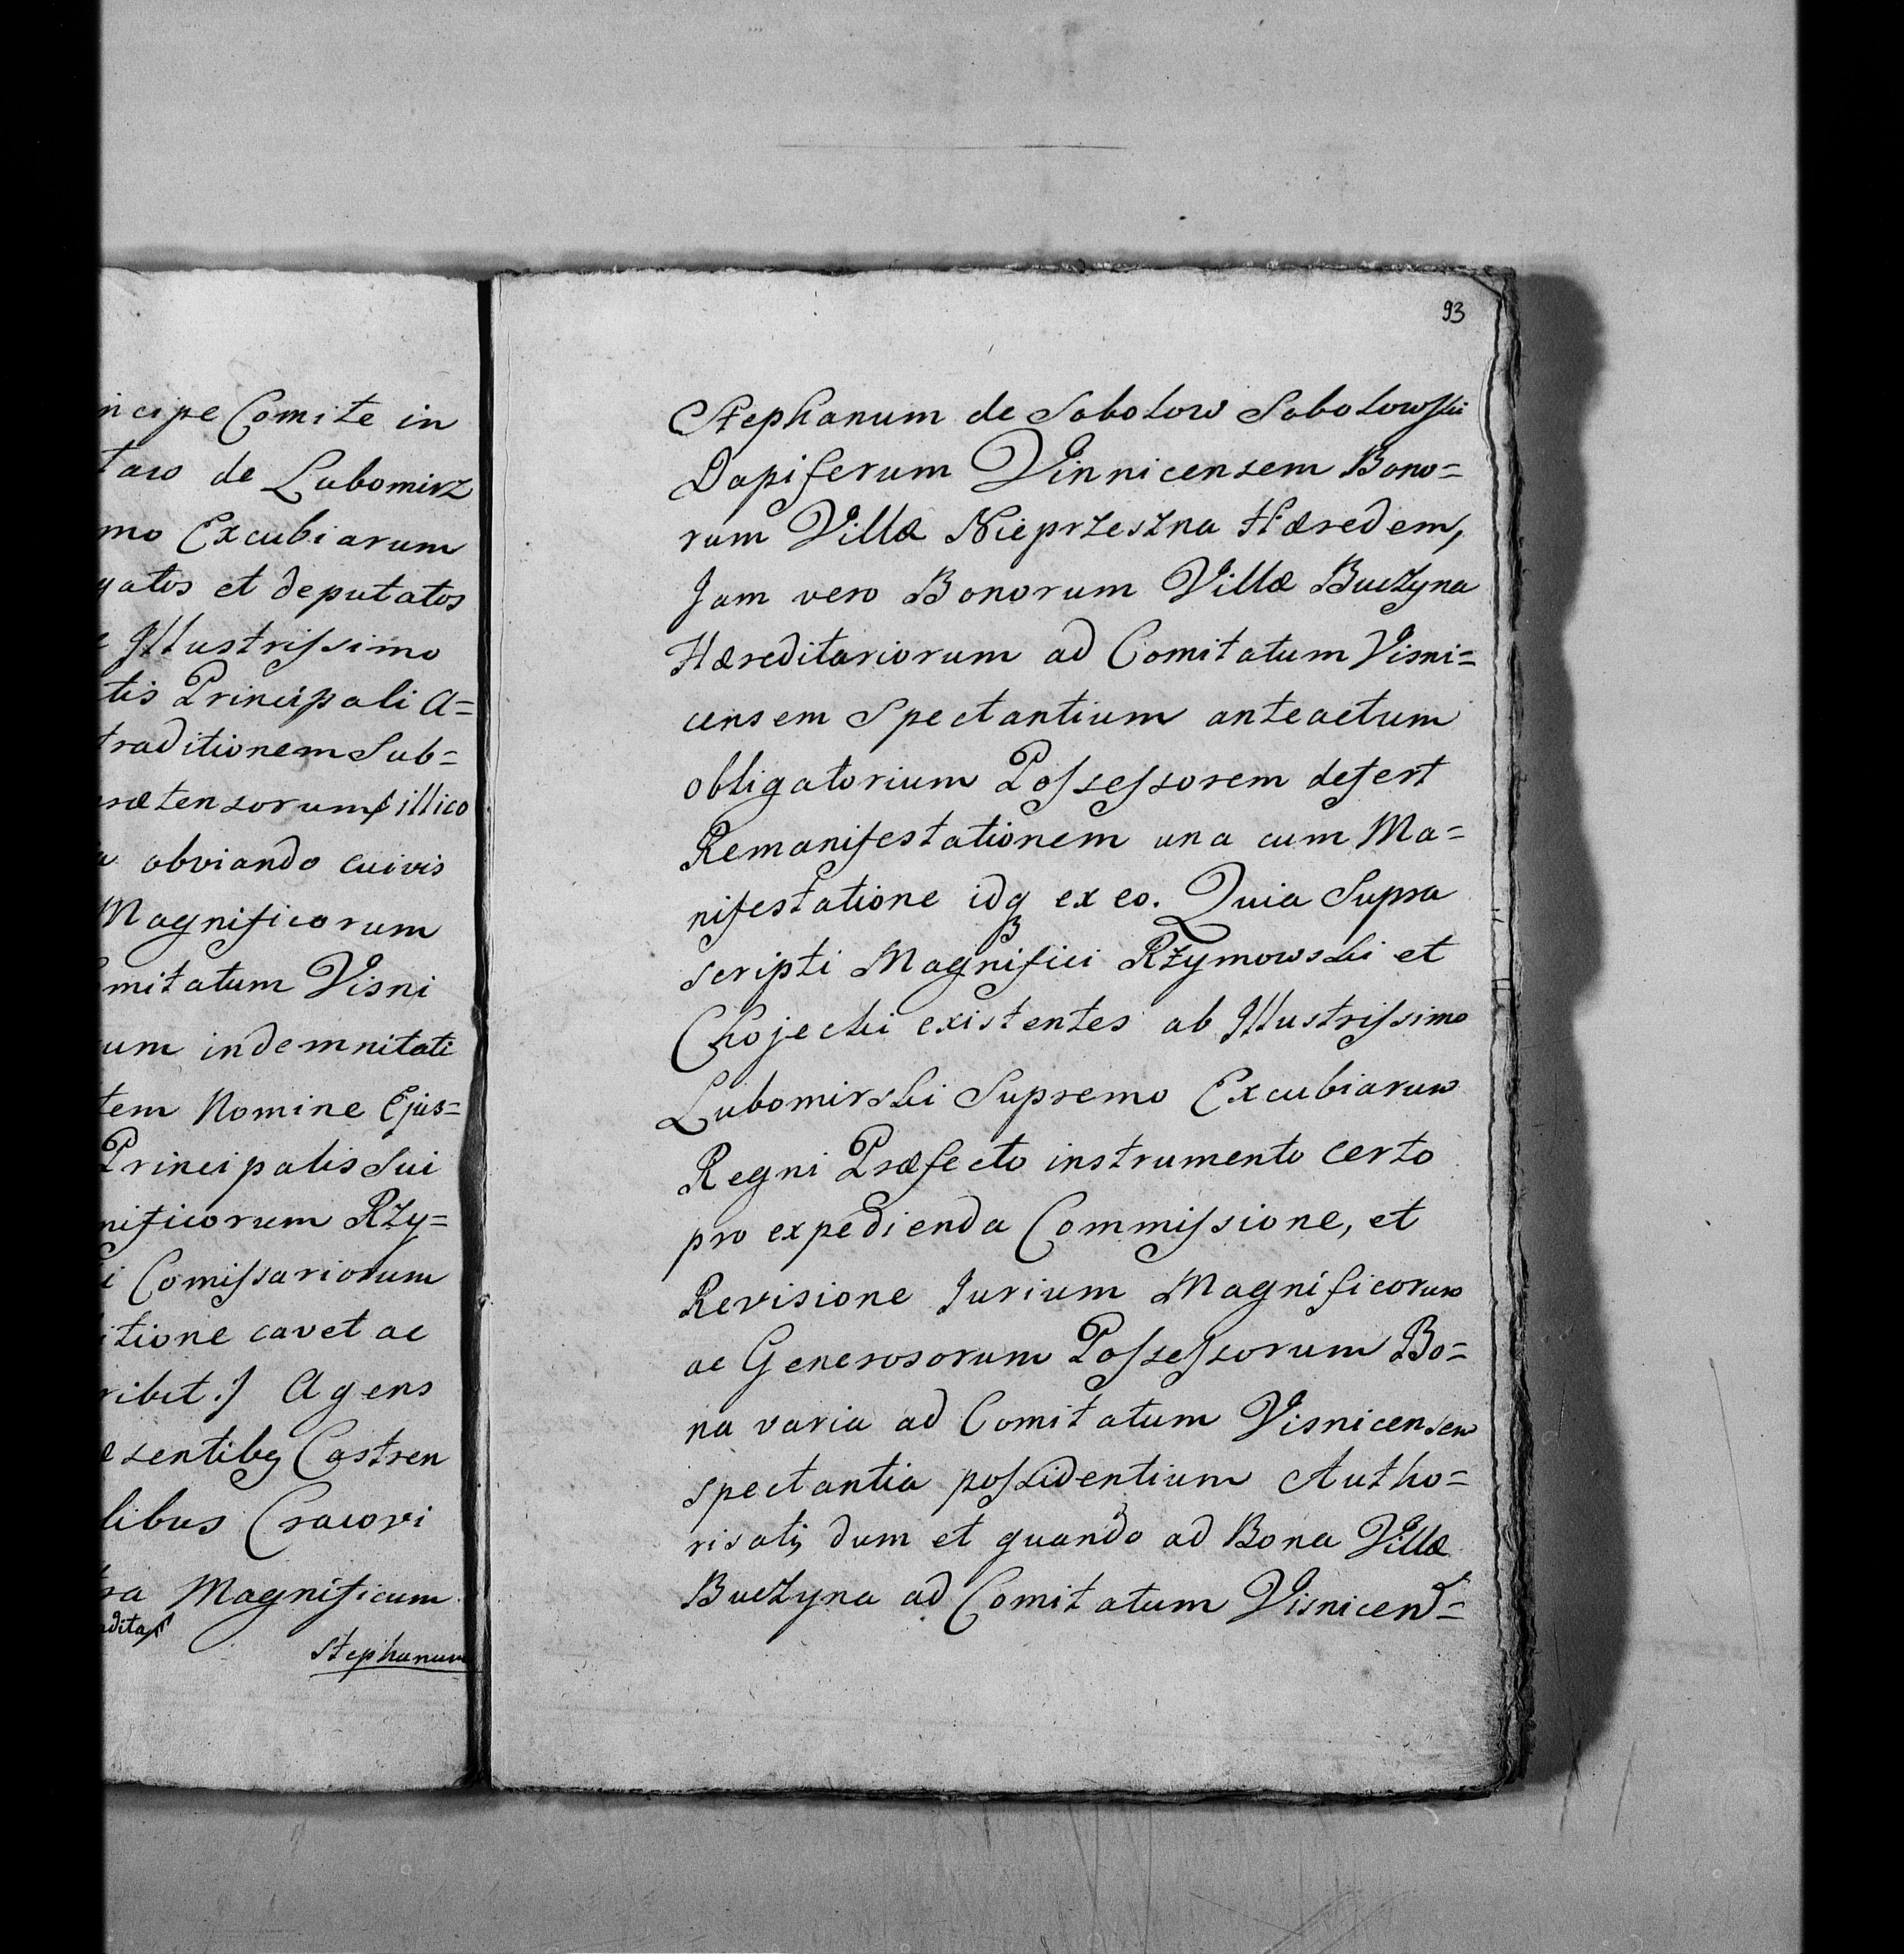 ncipe Comite in
taro de Lubomirz
mo Excubiarum
gatos et deputatos
e Illustrissimo
tis Principali A=
traditionem Sub=
rætensorum illico
a obviando cuivis
Magnificorum
mitatum Visni
um indemnitati
tem Nomine Ejus=
Principalis Sui
nificorum Rzy=
i Comissariorum
itione cavet ac
ribit./ Agens
æsentibq Castren
libus Cracovi
ra Magnificum
Stephanum
93
Stephanum de Sobolow Sobolowski
Dapiferum Vinnicensem Bono=
rum Villæ Nieprzeszna Hæredem,
Jam vero Bonorum Villæ Buczyna
Hæreditariorum ad Comitatum Visni=
censem Spectantium anteactum
obligatorium Possessorem defert
Remanifestationem una cum Ma=
nifestatione idq ex eo. Quia Supra
scripti Magnifici Rzymowski et
Chojecki existentes ab Illustrissimo
Lubomirski Supremo Excubiarum
Regni Præfecto instrumento certo
pro expedienda Commissione, et
Revisione Jurium Magnificorum
ac Generosorum Possessorum Bo=
na varia ad Comitatum Visnicensem
spectantia possidentium Autho=
risati, dum et quando ad Bona Villæ
Buczyna ad Comitatum Visnicen=